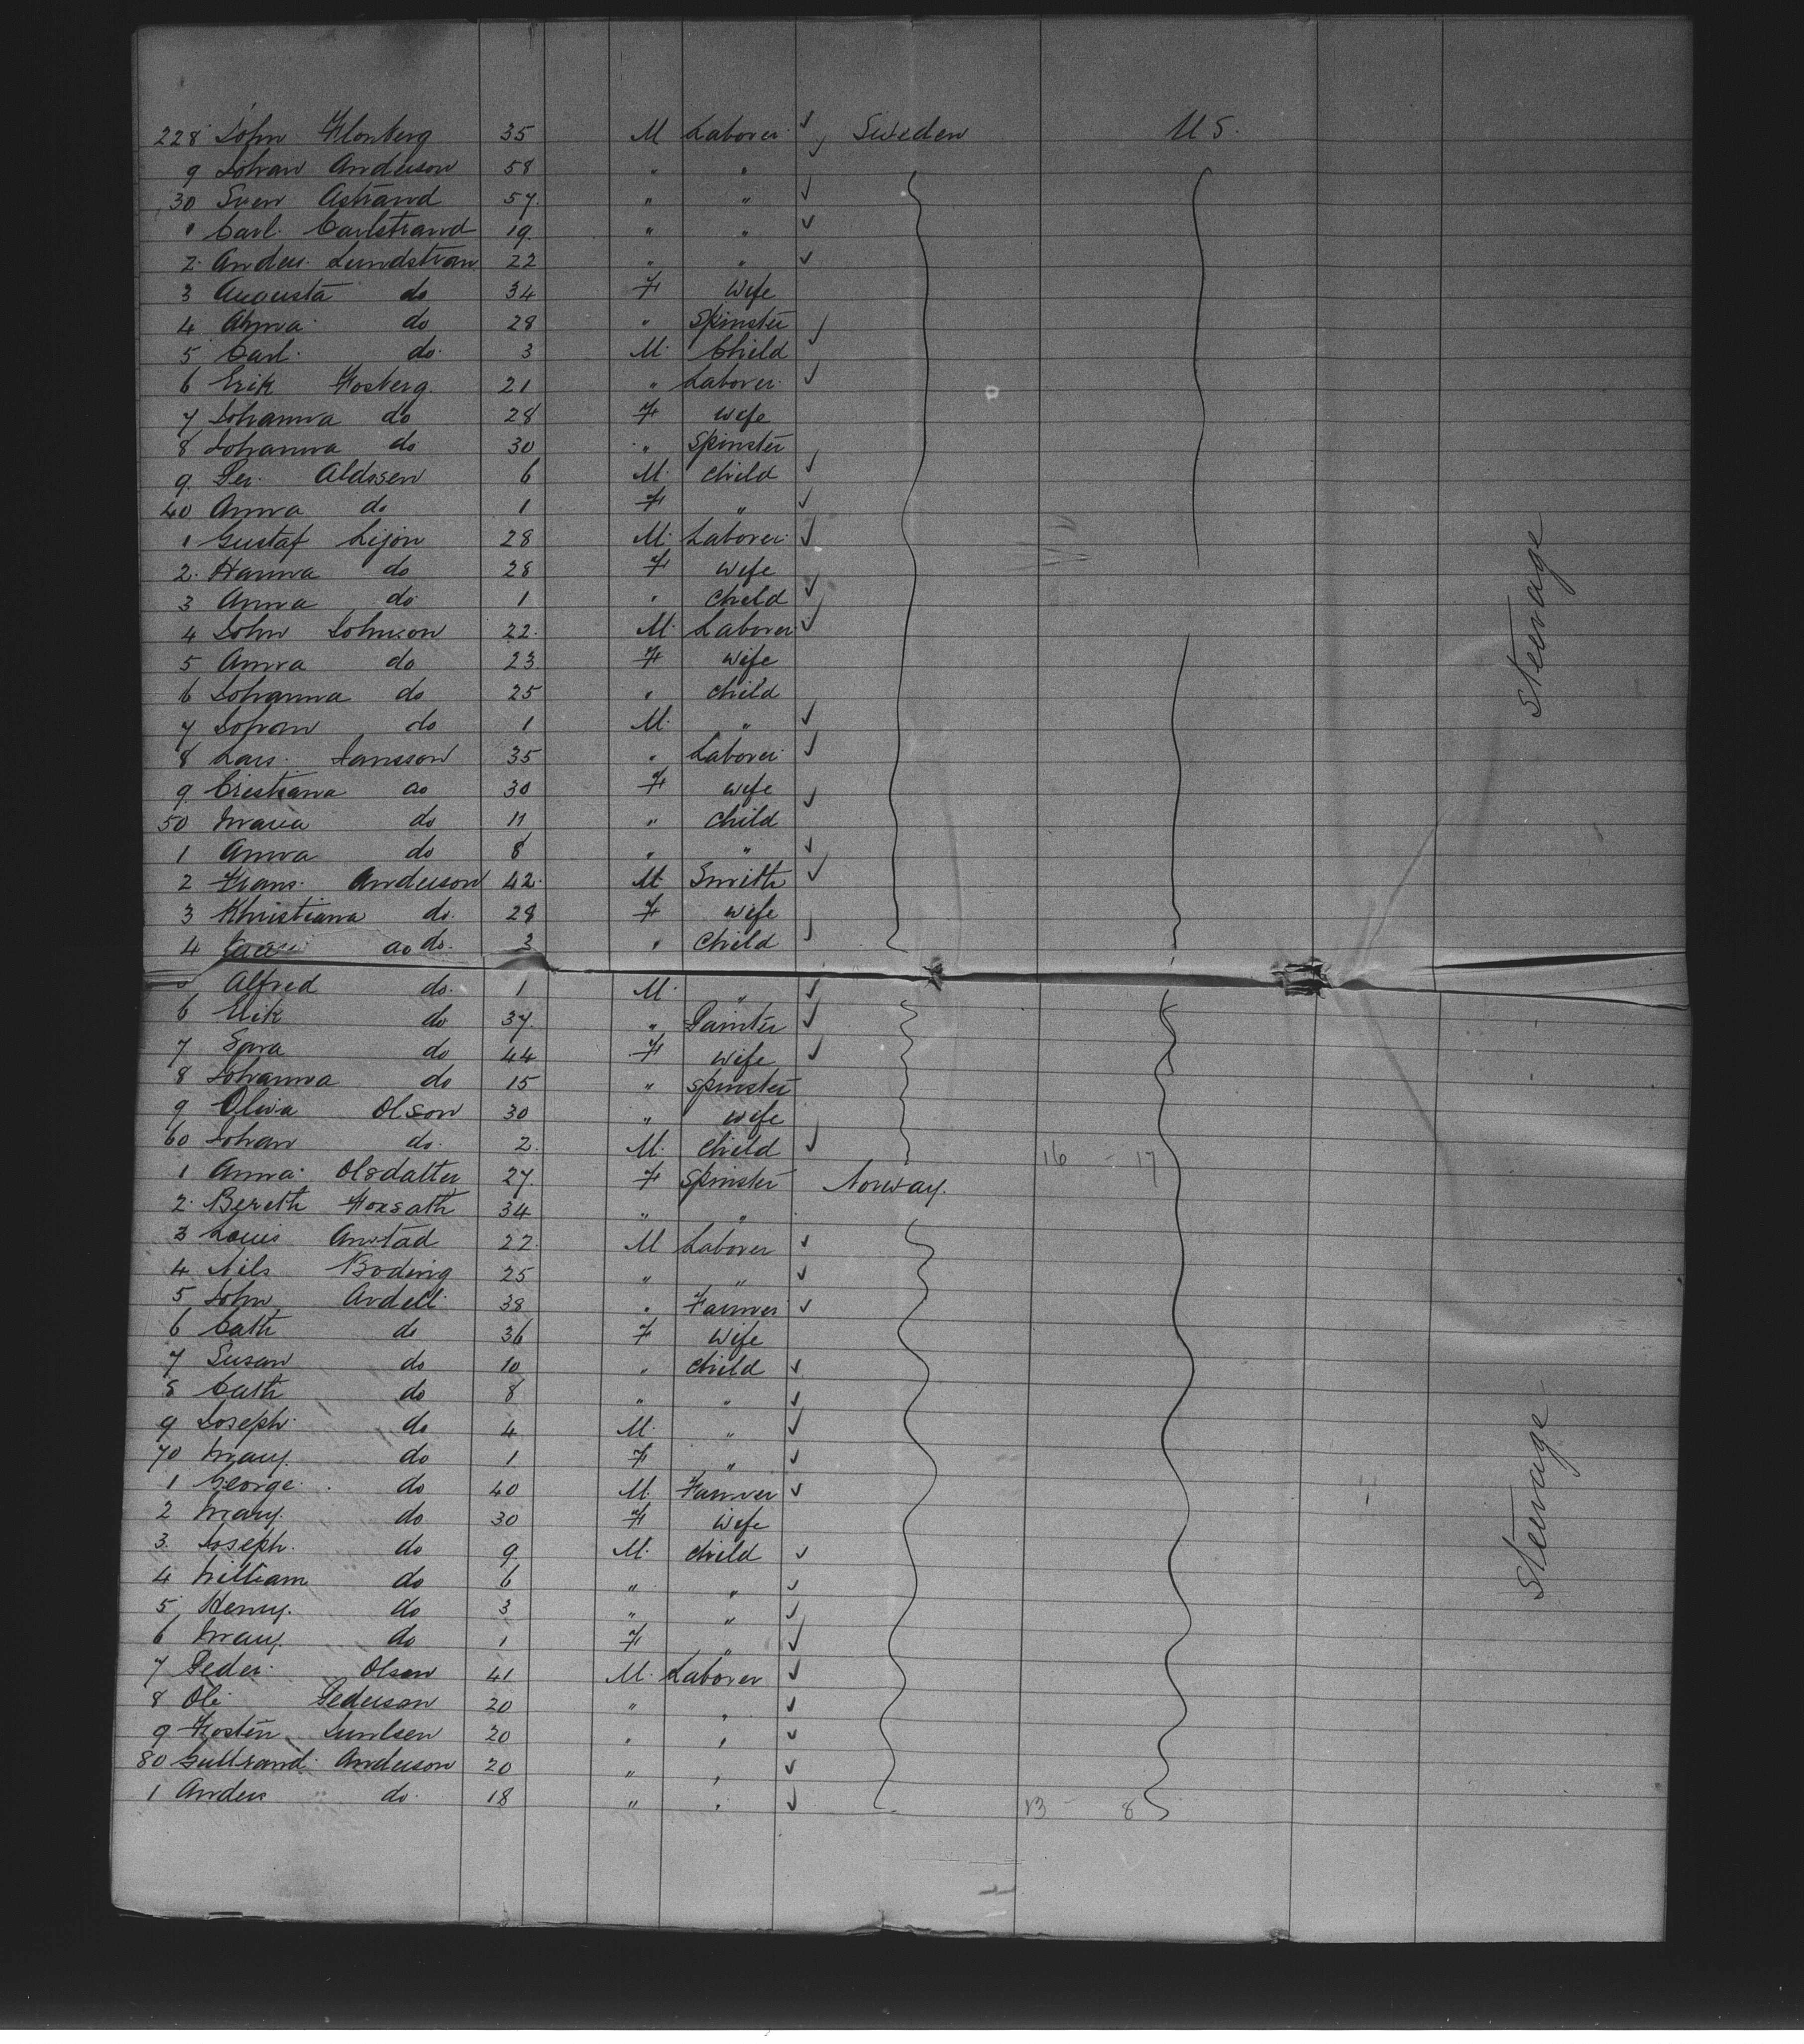 228 John Flonberg 35 M Laborer ✓ Sweden U S.
9 Johan Anderson 58 " " ✓
30 Sven Astrand 57 " " ✓
1 Carl Carlstrand 19 " " ✓
2 Anders Lundstran 22 " " ✓
3 Augusta do 34 F Wife
4 Anna do 28 " Spinster
5 Carl do 3 M Child ✓
6 Erik Fosberg 21 " Laborer ✓
7 Johanna do 28 F wife
8 Johanna do 30 " Spinster
9 Per Aldssen 6 M Child ✓
40 Anna do 1 F " ✓
1 Gustaf Lijon 28 M Laborer ✓
2 Hanna do 28 F Wife
3 Anna do 1 " Child ✓
4 John Johnson 22 M Laborer ✓
5 Anna do 23 F Wife
6 Johanna do 25 " Child
7 Johan do 1 M " ✓
8 Lars Jansson 35 " Laborer ✓
9 Cristiana do 30 F wife
50 Maria do 11 " Child ✓
1 Anna do 8 " " ✓
2 Frans Anderson 42 M Smith ✓
3 Khristiana do 28 F Wife
4 do 3 " Child ✓
Alfred do 1 M " ✓
6 Erik do 37 " Painter ✓
7 do 44 F Wife ✓
8 Johanna do 15 " Spinster
9 Oliva Olson 30 " wife
60 Johan do 2 M Child ✓ 16 - 17
1 Anna Olsdatter 27 F Spinster Norway.
2 Bereth Forsath 34 " "
3 Louis Anstad 22 M Laborer ✓
4 Nils Boding 25 " " ✓
5 John Ardell 38 " Farmer ✓
6 Cath do 36 F Wife
7 Susan do 10 " Child ✓
8 Cath do 8 " " ✓
9 Joseph do 4 M " ✓
70 Mary do 1 F " ✓
1 George do 40 M Farmer ✓
2 Mary do 30 F Wife
3 Joseph do 9 M Child ✓
4 William do 6 " " ✓
5 Henry do 3 " " ✓
6 Mary do 1 F " ✓
7 Peder Olsen 41 M Laborer ✓
8 Ole Pederson 20 " " ✓
9 Fosten 20 " " ✓
80 Gulbrand Anderson 20 " " ✓
1 Anders do 18 " " ✓ 13 - 8
Steerage
Steerage